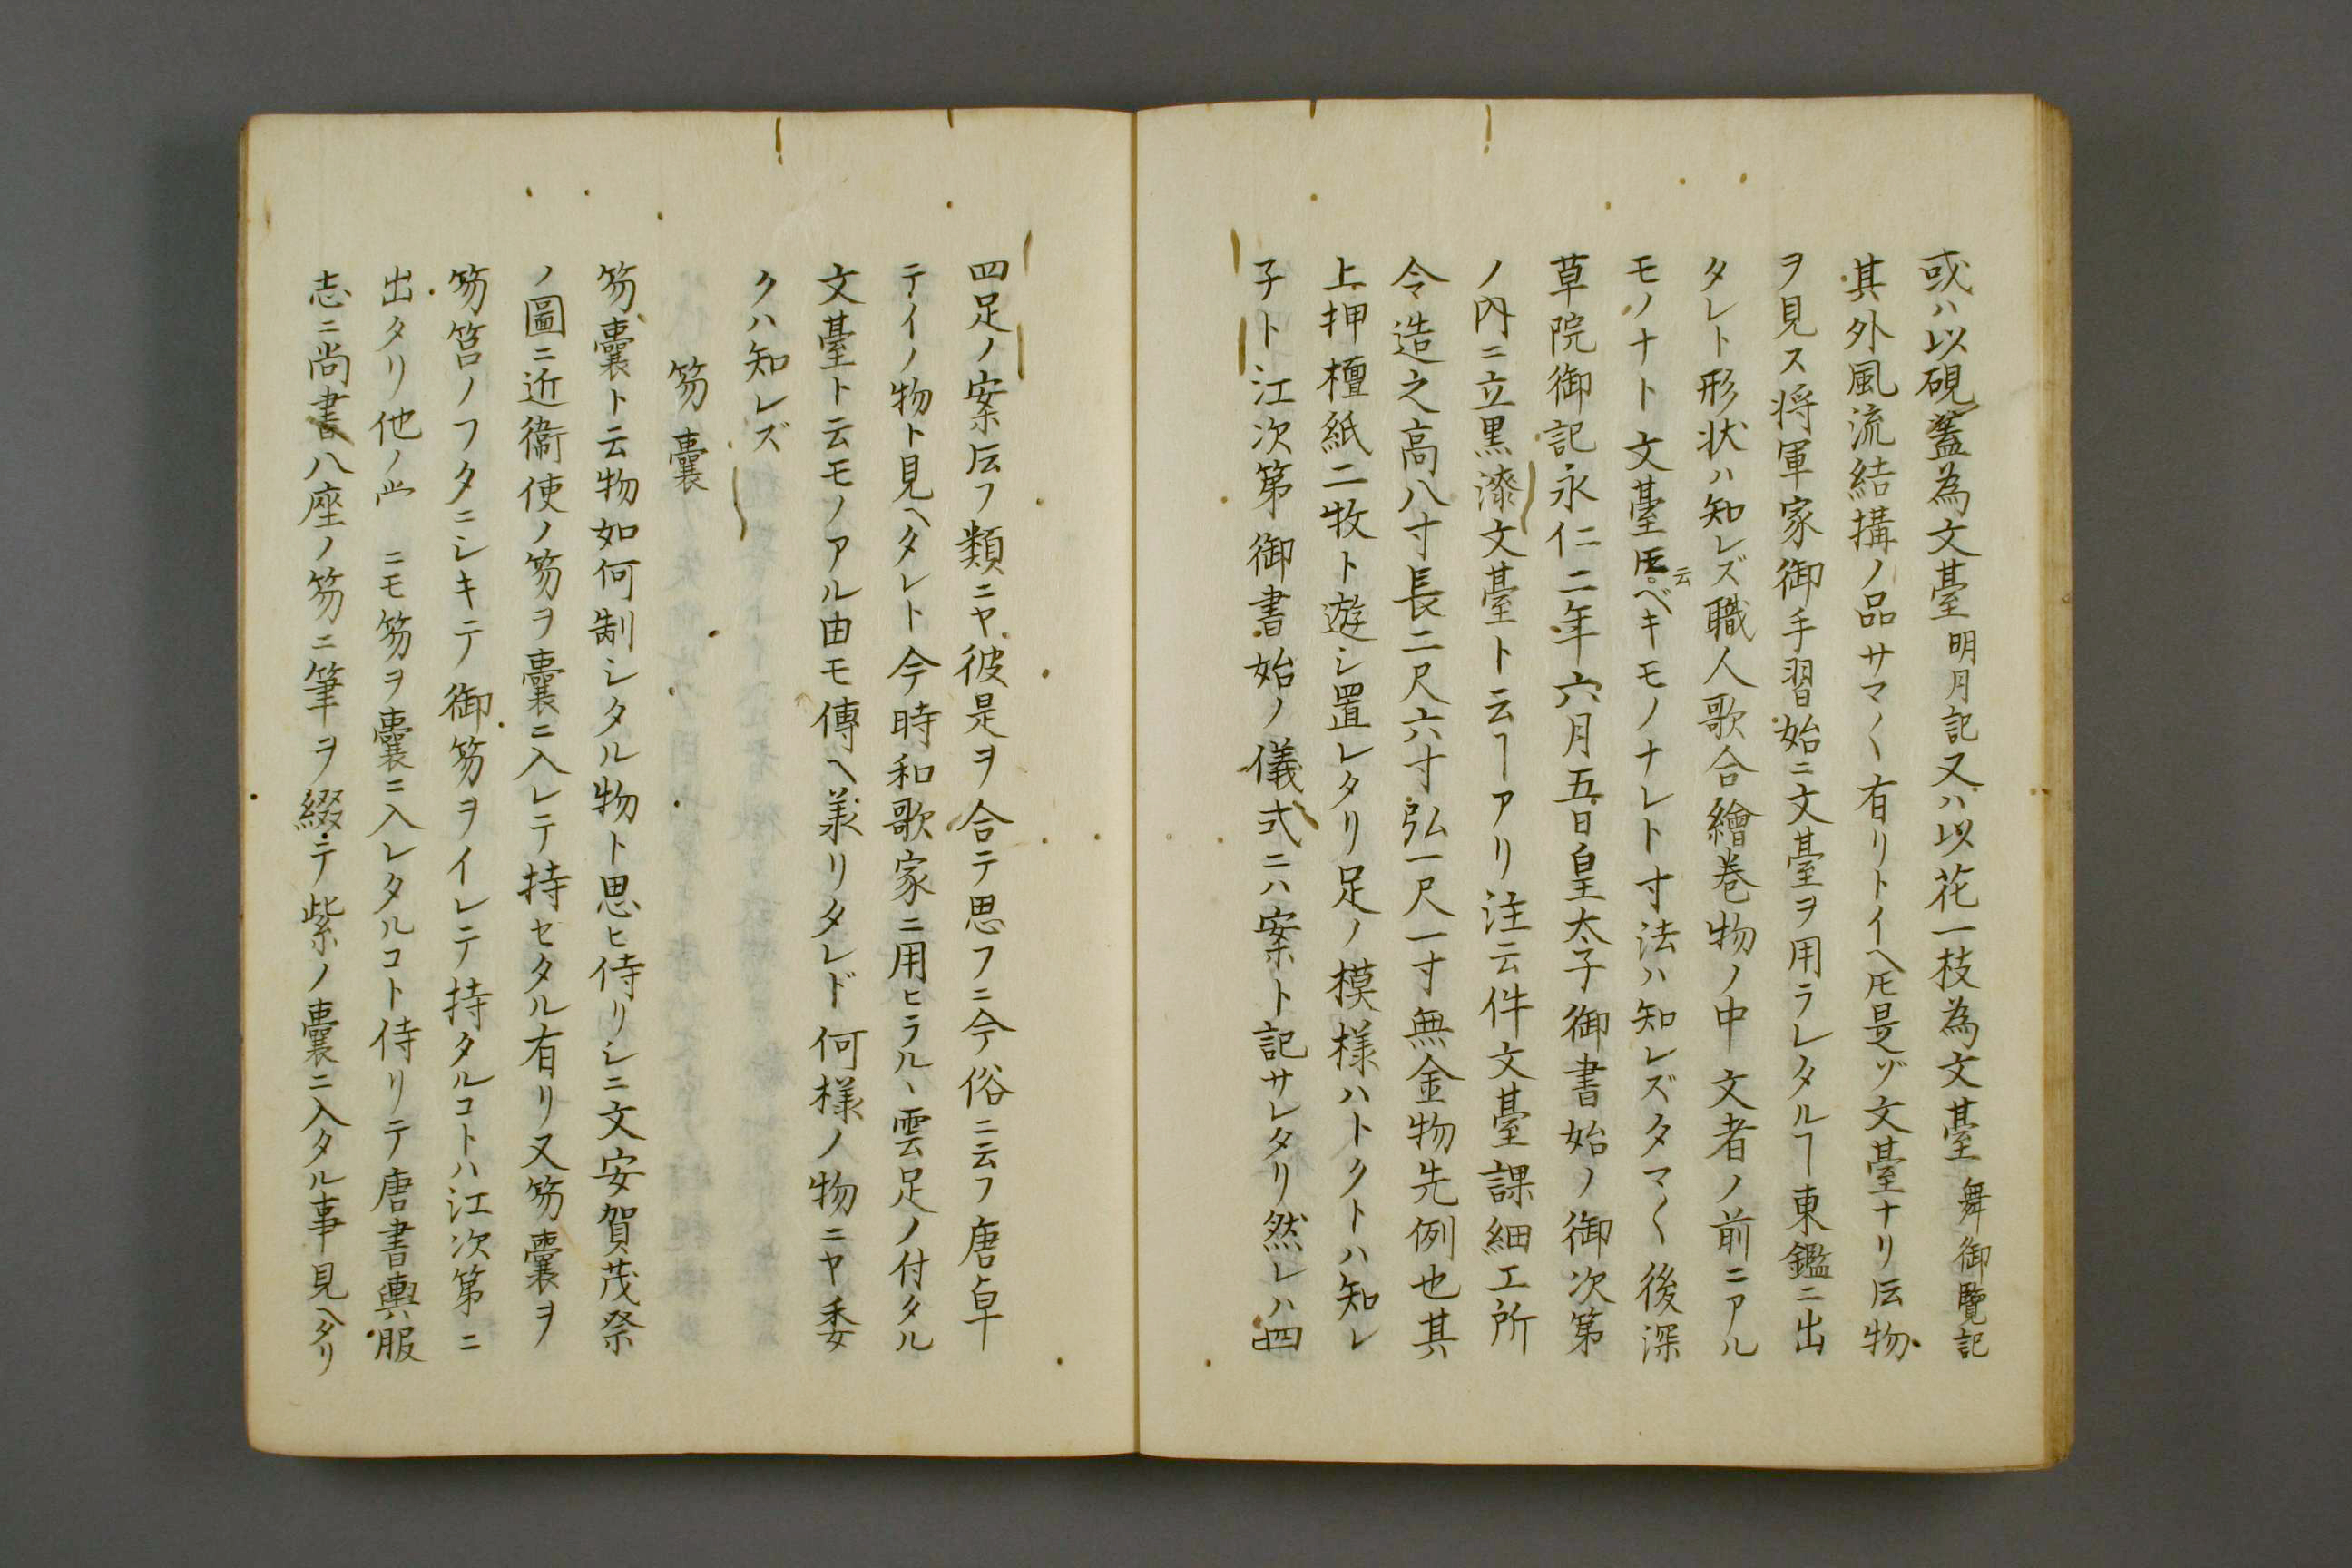 或ハ以硯蓋為文臺明月記又ハ以花一枝為文臺舞御覽記
其外風流結搆ノ品サマ〱有リトイヘ𪜈是ゾ文臺ナリ𪜈物
ヲ見ス将軍家御手習始ニ文臺ヲ用ラレタルヿ東鑑ニ出
タレト形状ハ知レズ職人歌合繪巻物ノ中文者ノ前ニアル
モノナト文臺𪜈云ベキモノナレト寸法ハ知レズタマ〱後深
草院御記永仁二年六月五日皇太子御書始ノ御次第
ノ内ニ立黒漆文臺ト云ヿアリ注云件文臺課細工所
令造之高八寸長二尺六寸弘一尺一寸無金物先例也其
上押檀紙二枚ト遊シ置レタリ足ノ模様ハトクトハ知レ
子ト江次第御書始ノ儀式ニハ案ト記サレタリ然レハ四
四足ノ案云フ類ニヤ彼是ヲ合テ思フニ今俗ニ云フ唐卓
テイノ物ト見ヘタレト今時和歌家ニ用ヒラルヽ雲足ノ付タル
文臺ト云モノアル由モ傳ヘ羕リタレド何様ノ物ニヤ委
クハ知レズ
笏囊
笏囊ト云物如何制シタル物ト思ヒ侍リシニ文安賀茂祭
ノ圖ニ近衞使ノ笏ヲ囊ニ入レテ持セタル有リ又笏囊ヲ
笏筥ノフタニシキテ御笏ヲイレテ持タルコトハ江次第ニ
出タリ他ノ屵ニモ笏ヲ囊ニ入レタルコト侍リテ唐書輿服
志ニ尚書八座ノ笏ニ筆ヲ綴テ紫ノ囊ニ入タル事見ヘタリ